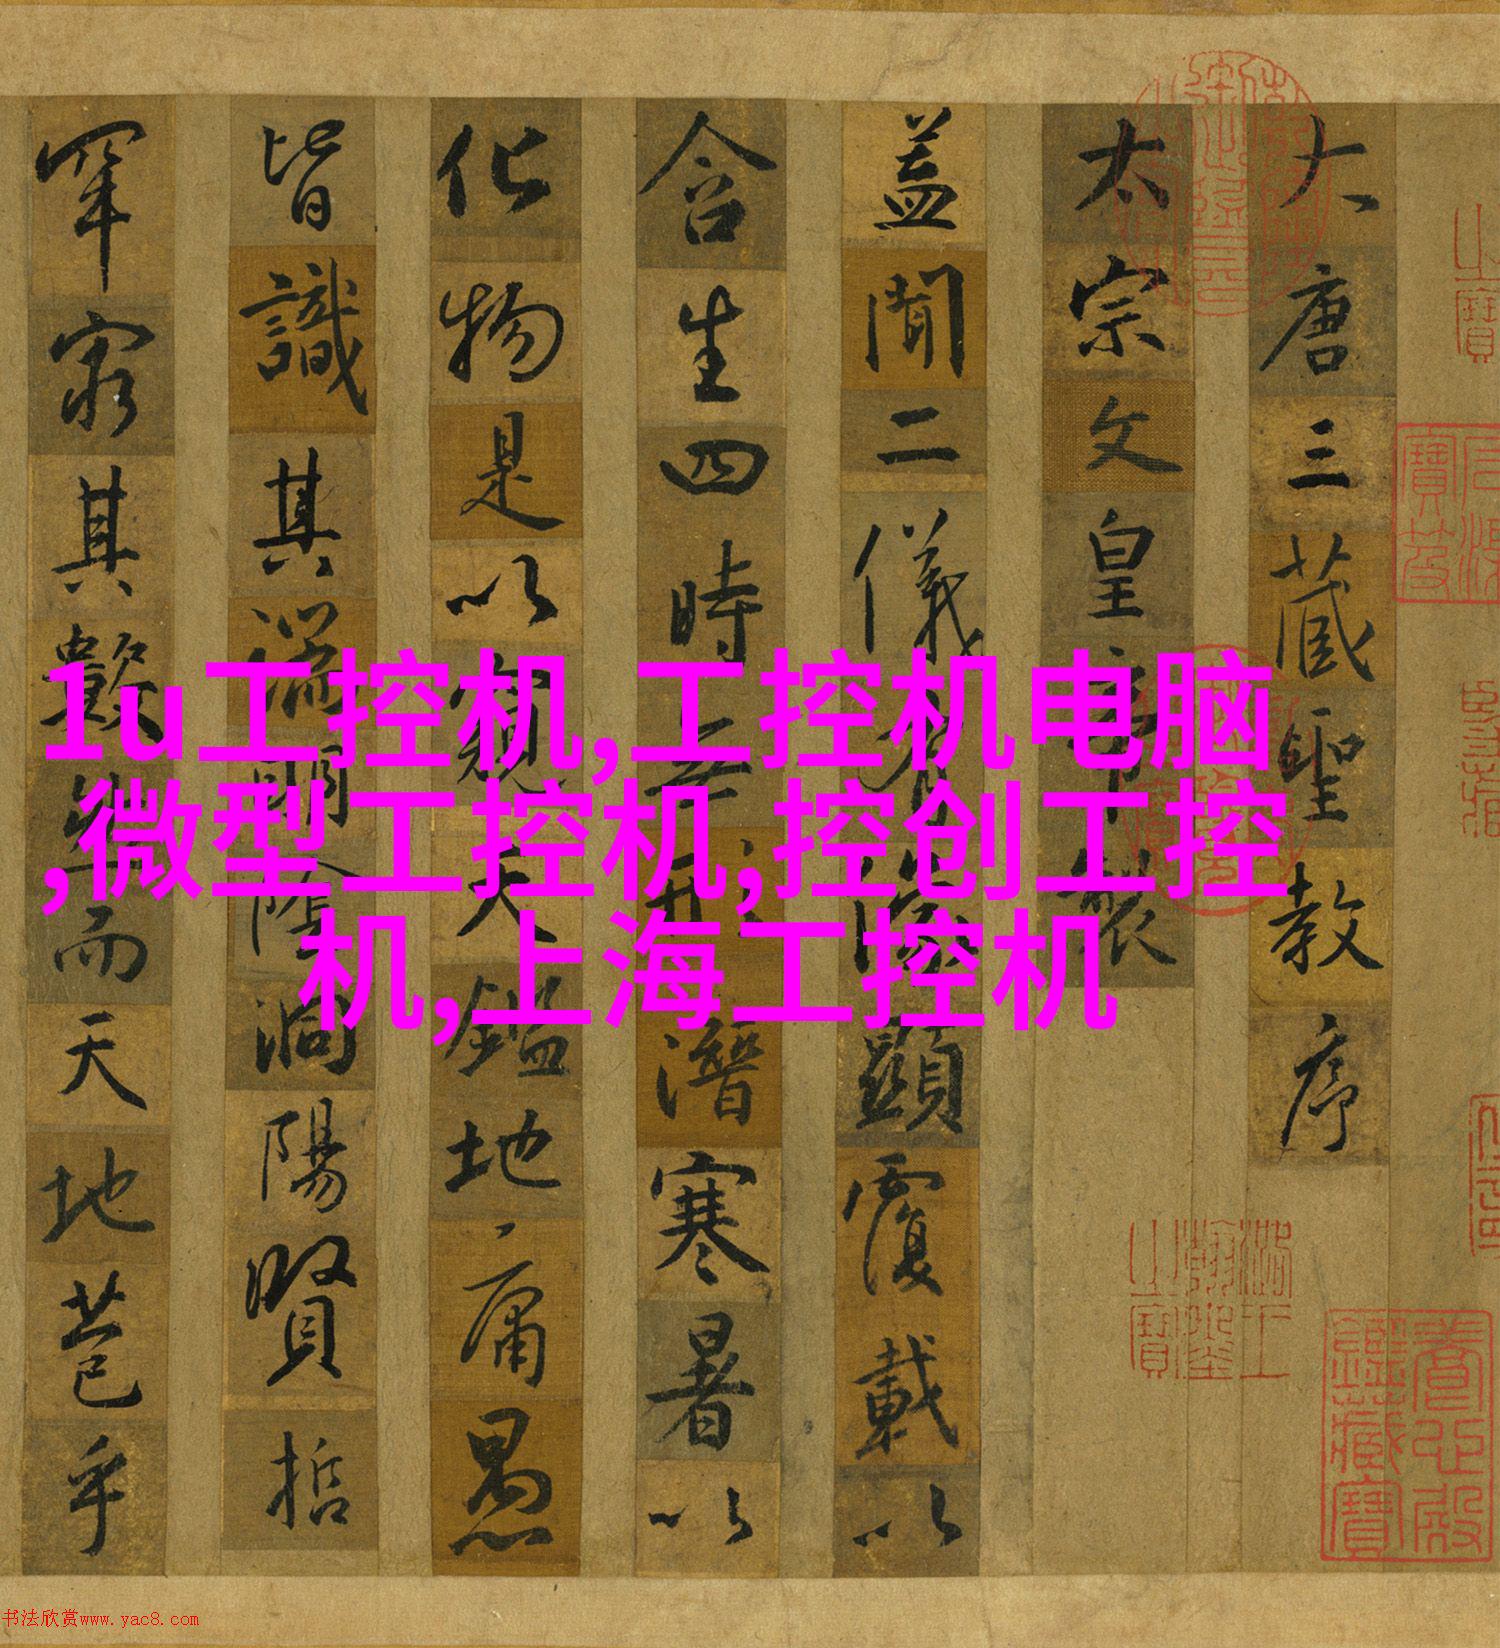 大唐三藏聖教序
太宗文皇帝製
蓋聞二儀有像顯覆載以
含生四時無形潛寒暑以
化物是以窺天鑑地庸愚
皆識其端明陰洞陽賢哲
罕窮其數然而天地苞乎
1u工控机,工控机电脑
,微型工控机,控创工控
机,上海工控机
養心殿鑑藏寶
书法欣赏www.yac8.com